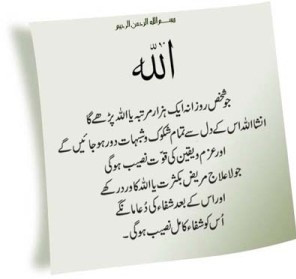 بسم اللہ الرحمن الرحیم
اللہ
جو شخص روزانہ ایک ہزار مرتبہ یا اللہ پڑھے گا
انشا اللہ اس کے دل سے تمام شکوک و شبہات دور ہو جائیں گے
اور عزم و یقین کی قوت نصیب ہو گی
جو لا علاج مریض بکثرت یا اللہ کا ورد رکھے
اور اس کے بعد شفاء کی دُعا مانگے
اُس کو شفاء کامل نصیب ہو گی۔